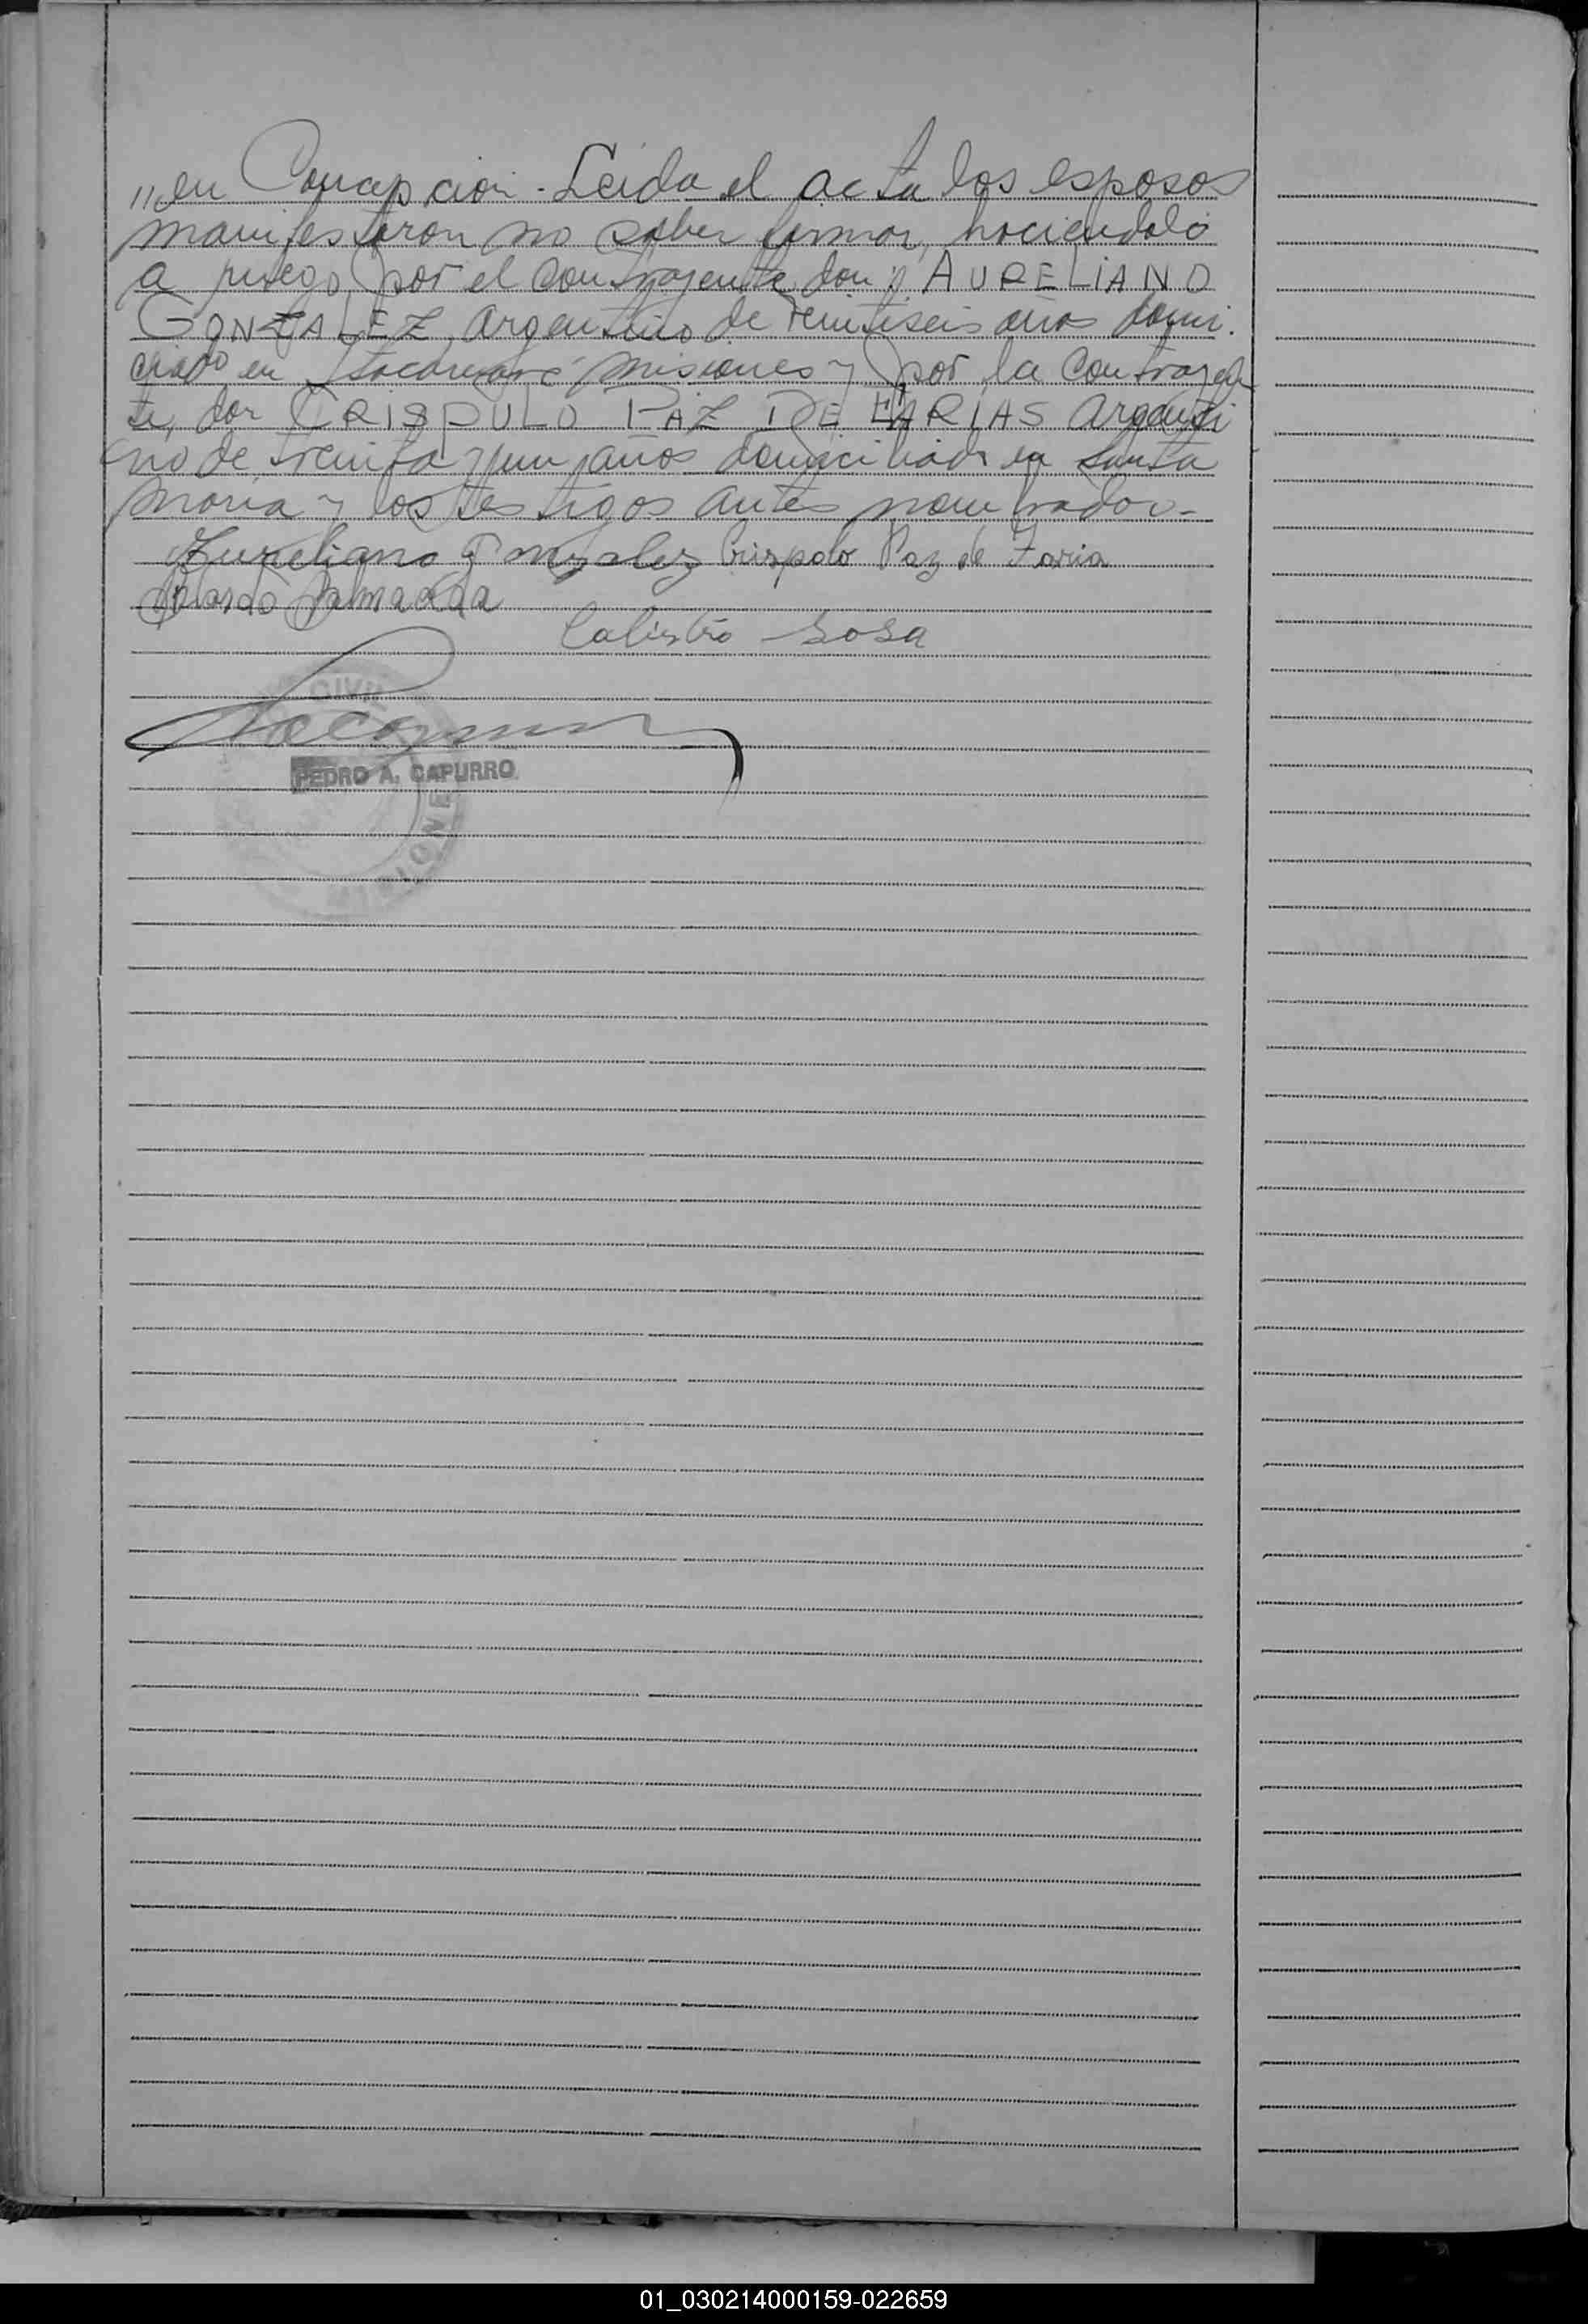 "en Concepción. Leida el acta los esposos
manifestaron no saber firmar, haciendolo
a ruego por el contrayente don: AURELIANO
GONZALEZ, argentino de veintiseis años domi.
ciliado en Itacaruaré Misiones y por la contrayen
te, don CRISPULO PAZ DE FARIAS argenti
no de treinta y un años domiciliado en Santa
Maria y los testigos antes nombrados.-
Aureliano Gonzalez Crispolo Paz de Faria
Almada
Calistro Sosa
CIVIL
PEDRO A. CAPURRO
MISIONES
01_030214000159-022659